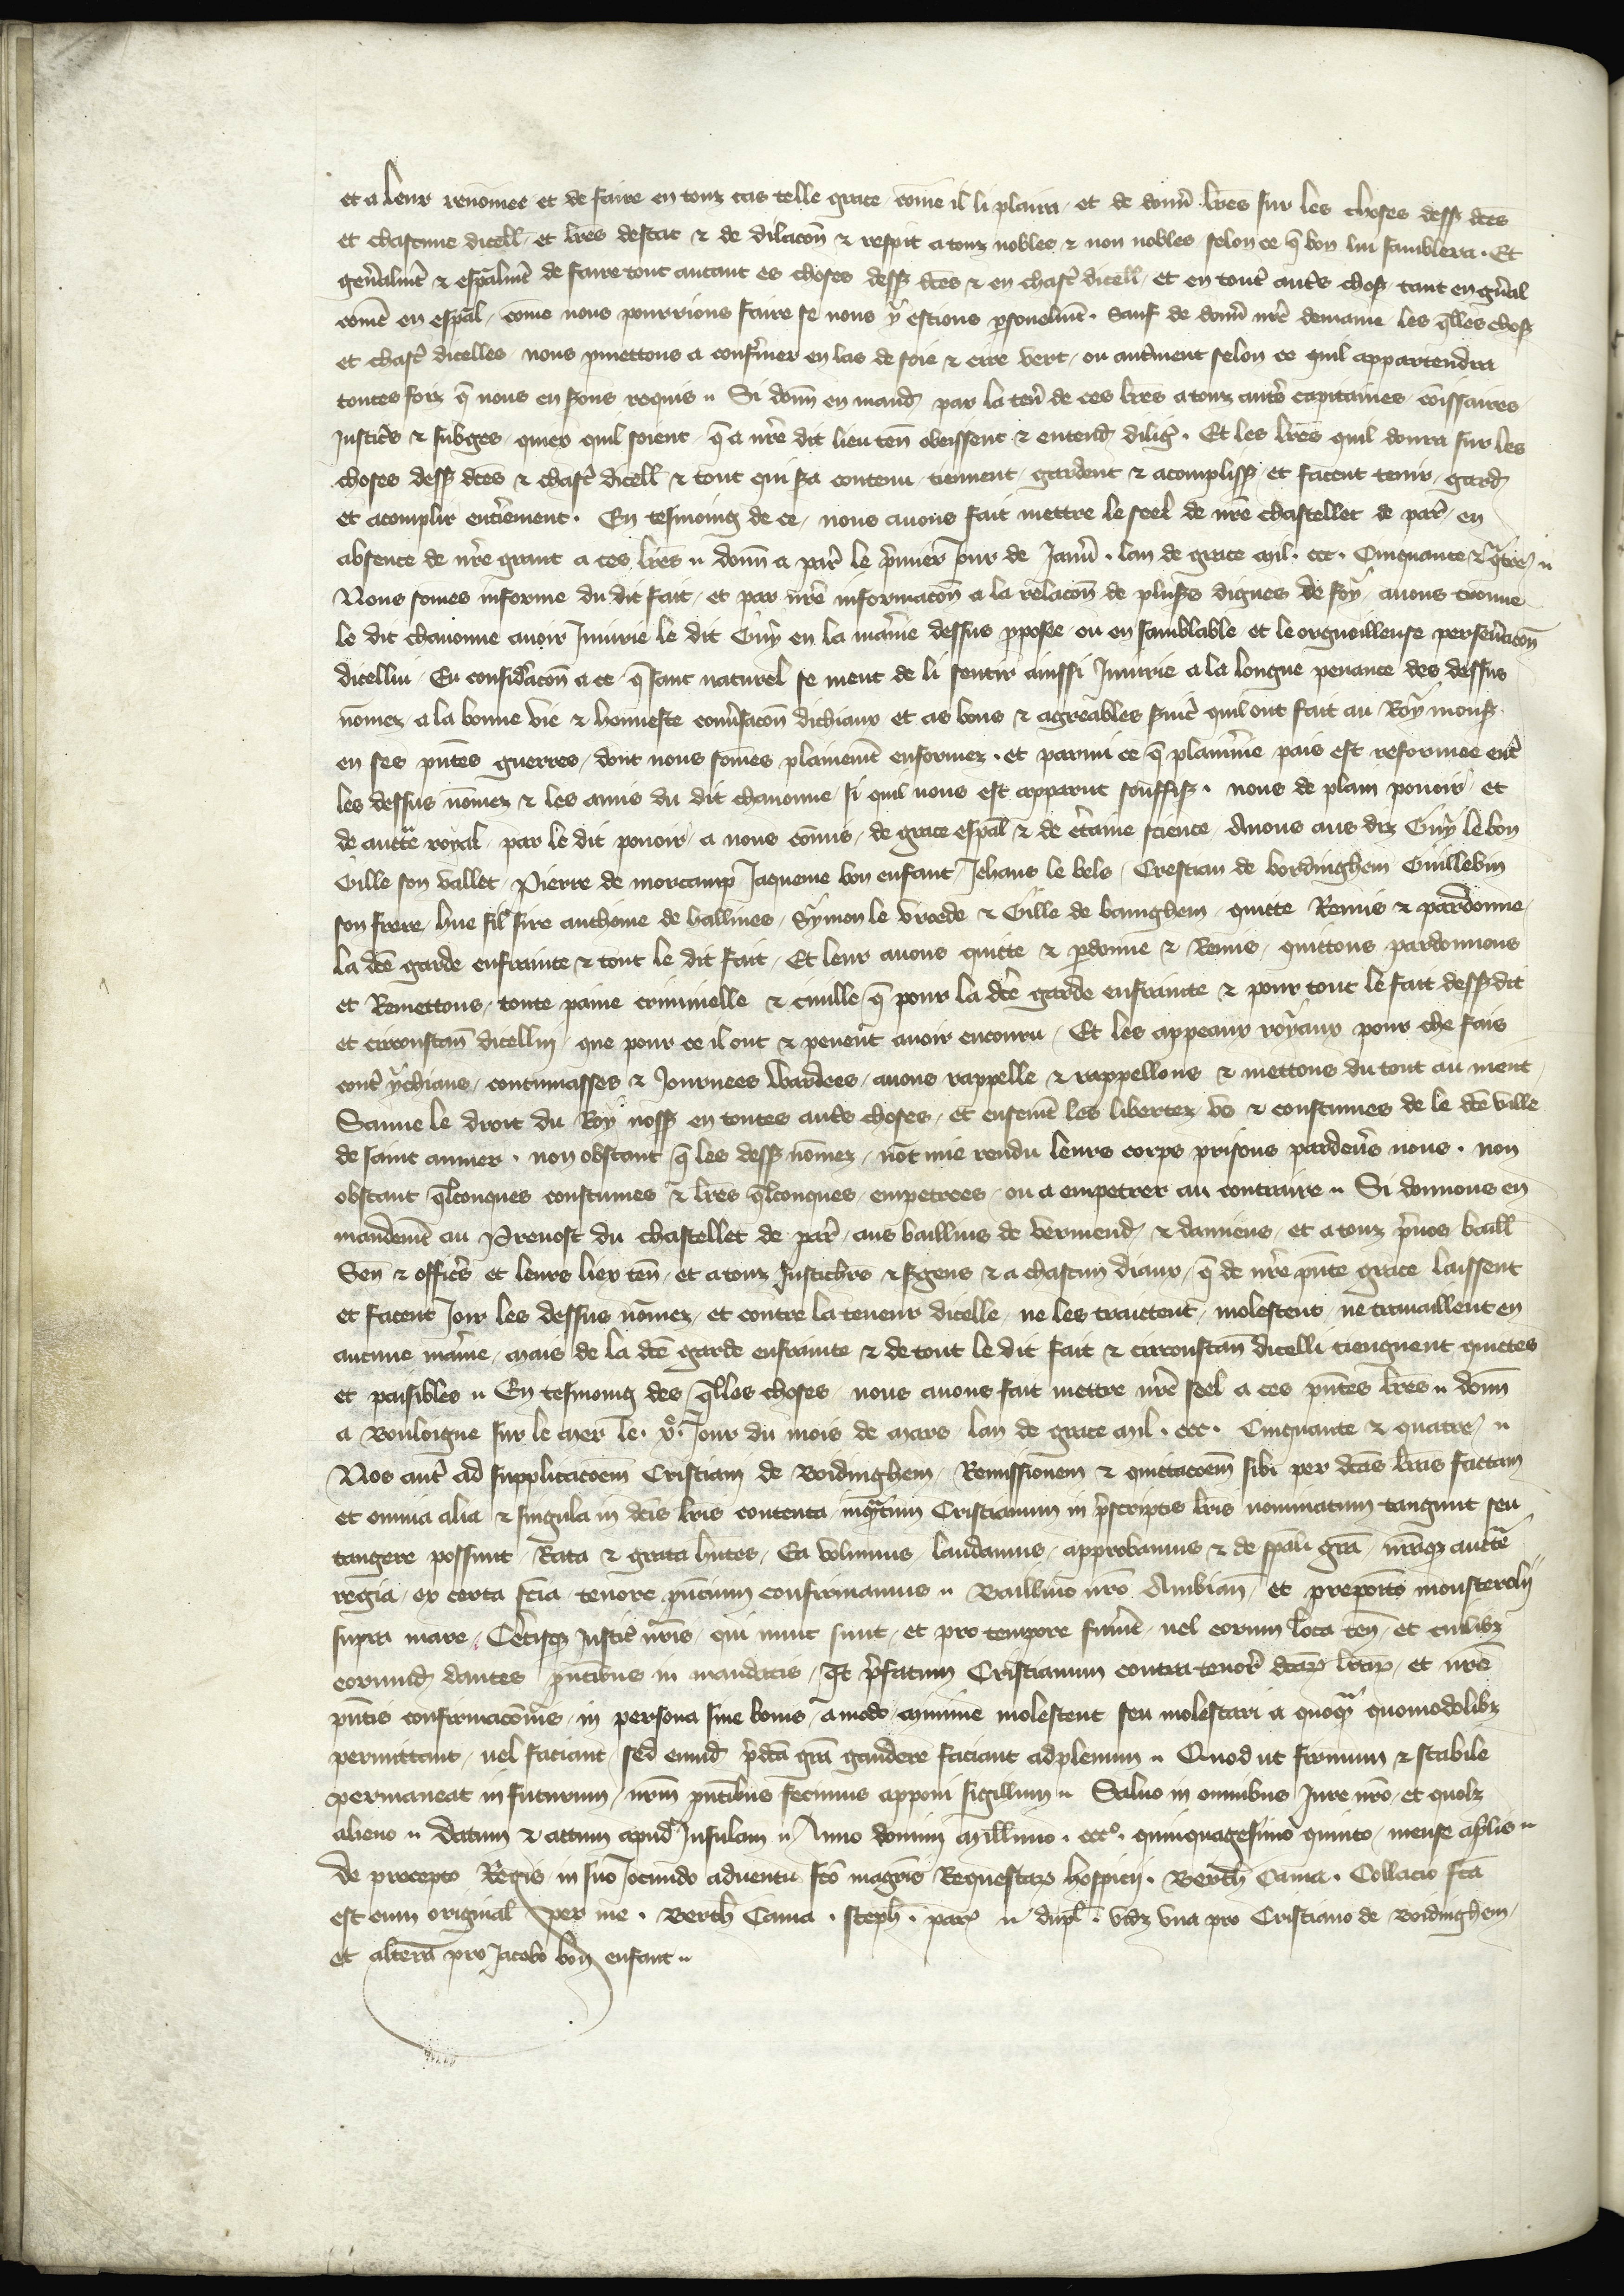 et a leur renōmee et de faire en touz cas telle grace cōme il li plaira / et de donn̄ lr̄es sur les choses dess9 dc̄es
et chascune dicell / et lr̄es destat & de dilacōn & respit a touz nobles & non nobles selon ce q̄ bon lui samblera . Et
gen̄alm̄t & esp̄alm̄t de faire tout autant es choses dess9 dc̄es & en chasc̄ dicell / et en tout̄ aut̄s chos9 tant en gn̄al
com̄e en esp̄al / cōme nous pourrions faire se nous y estions p̄sonelm̄t . Sauf de donn̄ nr̄e demaine les q̄lles chos9
et chasc̄ dicelles nous p̄mettons a conf̄mer en las de soie & cire vert / ou aut̄ment selon ce quil appartendra
toutes foiz q̄ nous en s9ons requis .. Si donn̄ en mand̄ par la ten̄ de ces lr̄es a touz aut̄s capitaines cōissaires
justic̄s & subges / quiex quil soient / q̄ a nr̄e dit lieu ten̄ obeissent & entend̄ diliḡ . Et les lr̄es quil donra sur les
choses dess9 dc̄es & chasc̄ dicell & tout qui s9a contenu tiennent / gardent & acompliss9 et facent tenir / gard̄
et acomplir ent̄iement . En tesmoing de ce / nous auons fait mettre le seel de nr̄e chastellet de par̄ / en
absence de nr̄e grant a ces lr̄es .. donn̄ a par̄ le p̄mier Jour de Janu̅ . lan de grace mil . ccc . Cinquante & q̄tre ..
Nous somes informe du dit fait / et par nr̄e informacōn a la relacōn de plus9s dignes de foy / auons trouue
le dit chanonne auoir Iniurie le dit Guy en la man̄ie dessus p̄posee ou en samblable / et le orgueilleuse perseu̅acōn
dicellui / Eu consid̄acōn a ce / q̄ sanc naturel se muet de li sentir ainssi Iniurie a la longue penance des dessus
nōmez / a la bonne vie & honneste conu̅sacōn dichiaux et as bons & agreables s9uic̄ quil ont fait au Roy mons9
en ses pn̄tes guerres / dont nous somes plainem̄t enformez . et parmi ce q̄ plaiu̅ine pais est reformee ent̄
les dessus nōmez & les amis du dit chanonne / si quil nous est apparut souffis9 . nous de plain pouoir et
de auct̄te royal / par le dit pouoir a nous com̄is / de grace esp̄al & de c̄taine science / Auons aus diz Guy le bon
Gille son vallet / Pierre de morcamp Jaqueme bon enfant / Jehans le bels / Crestian de bordinghem Guillebin
son frere / hue fil sire anthoine de hallines / Symon le vroede & Gille de bainghem / quicte Remis & pardonne
la dc̄e garde enfrainte & tout le dit fait / Et leur auons quicte & p̄donne & Remis / quittons pardonnons
et Remettons / toute paine criminelle & ciuille / q̄ pour la dc̄e garde enfrainte & pour tout le fait dess9dit
et circonstan̄ dicelluy / que pour ce il ont & peuent auoir encouru / Et les appeaux royaux pour che fais
cont̄ ychiaus / contumasses & Journees wardees / auons rappelle & rappellons & mettons du tout au nient
Sauue le droit du Roy noss9 en toutes aut̄s choses / et ensem̄t les libertez vs & coustumes de le dc̄e ville
de saint aumer . non obstant q̄ les dess9 nōmez / nōt mie rendu leurs corps prisons pardeu̅s nous . non
obstant q̄lconques coustumes & lr̄es q̄lconques / empetrees ou a empetrer au contraire .. Si donnons en
mandem̄t au Preuost du chastellet de par̄ / aus baillius de vermend̄ / & damiens / et a touz p̄uos baill
Sen̄ & offic̄s et leurs liex ten̄ / et a touz Justichrs & s9gens & a chascun diaux / q̄ de nr̄e pn̄te grace laissent
et facent Joir les dessus nōmez / et contre la teneur dicelle / ne les traictent / molestent / ne trauaillent en
aucune man̄ie / mais de la dc̄e garde enfrainte & de tout le dit fait & circonstan̄ dicelli tiengnent quictes
et paisibles .. En tesmoing des q̄lles choses / nous auons fait mettre nr̄e seel a ces pn̄tes lr̄es .. donn̄
a Bouloigne sur le mer le . xº . Jour du mois de mars / lan de grace mil . ccc . Cinquante & quatre ..
Nos aut̄ ad supplicacoem̄ Cristiani de Boidinghem / Remissionem & quictacoem̄ sibi per dc̄as lr̄as factam
et omnia alia & singula in dc̄is lr̄is contenta / inq̄ntum Cristianum in p̄scriptis lr̄is nominatum tangunt seu
tangere possunt / Rata & grata hn̄tes / Ea volumus / laudamus / approbamus & de sp̄ali grā / nr̄aq3 auct̄te
regia / ex certa sc̄ia / tenore pn̄cium confirmamus .. Bailliuo nr̄o Ambian̄ / et preposito monsterolij
supra mare / Cet̄isq3 justic̄ nr̄is / qui nunc sunt / et pro tempore fuer̄t / uel eorum loca ten̄ / et cuilib3
eorumd̄ dantes pn̄tibus in mandatis / Qt p̄fatum Cristianum contra tenor̄ dc̄ar̄ lr̄ar̄ / et nr̄e
pn̄tis confirmacōnis / in persona siue bonis / amodo / minime molestent seu molestari a quoq̄ quomodolib3
permittant / uel faciant / sed eumd̄ p̄dc̄a grā gaudere faciant adplenum .. Quod ut firmum & stabile
permaneat in futurum / nr̄m pn̄tibus fecimus apponi sigillum .. Saluo in omnibus Jure nr̄o / et quol3
alieno .. Datum & actum apud Insulam .. Anno domini mill̄imo . cccº . quinquagesimo quinto / mense ap̄lis ..
de precepto Regis / in suo Jocundo aduentu fc̄o magr̄is Requestar̄ hospicij . Berth̄ Cama . Collacio fc̄a
est cum original / per me . Berth̄ Cama . steph̄ . par̄ .. dupl̄ . vid3 vna pro Cristiano de Boidinghem /
et altera pro Jacobo bon enfant ..